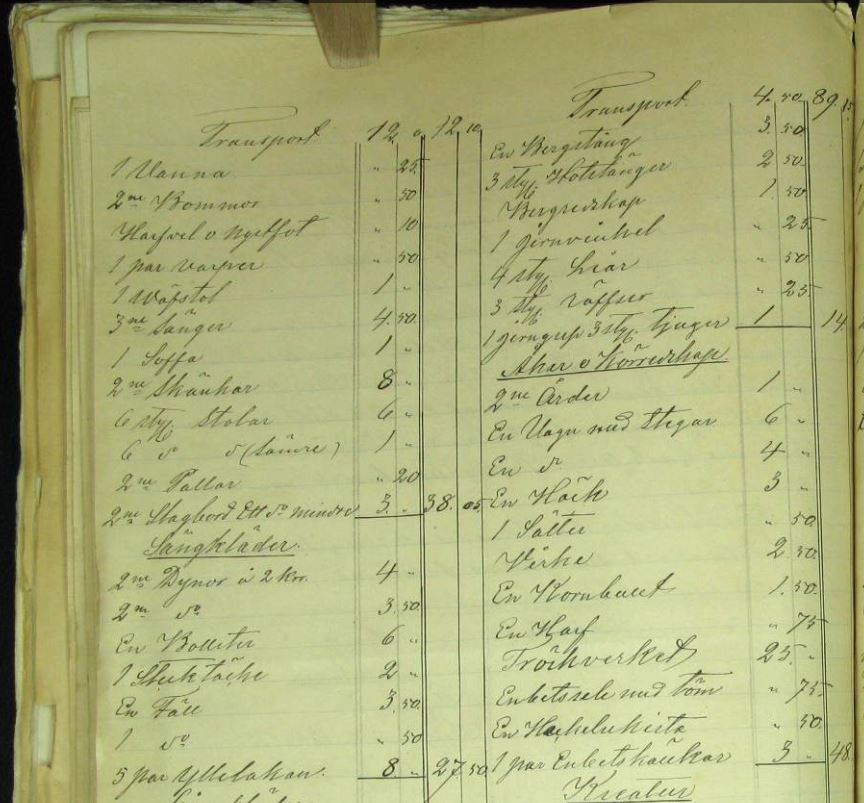 Transport 12 " 12. 10
1 Vanna " 25
2ne Bommor " 50
Harfvel o nystfot " 10
1 par varpor " 50
1 Wäfstol 1 "
3ne Sänger 4.50
1 Soffa 1 "
2ne Skänkar 8 "
6 styg Stolar 6 "
6 do do (Sämre) 1 "
2ne Pallar " 20
2ne Slagbord Ett do mindre 3. " 38. 05
Sängkläder.
2ne Dynor à 2 kr. 4 "
2ne do 3.50
En Bolster 6 "
1 Sticktäcke 2 "
En Fäll 3.50
1 do " 50
5 par Yllelakan. 8 " 27 50
Transport 4. 50 89.
En Bergstång 3. 50
3 styg 2 50
Bergredskap 1. 50
1 jernvinkel " 25
4 styg Liar " 50
3 styg Räffsor " 25
1 jerngrep 3 styg. tjugor 1 14
Åker o Körredskap
2ne Årder 1 "
En Vagn med Stegar 6 "
En do 4 "
En Häck 3 "
1 Sätter " 50
Virke 2.50
En 1.50
En Harf " 75
Tröskverket 25. "
Enbetssele med töm " 75
En Hackelsekista " 50
1 par 3 " 48.
Kreatur